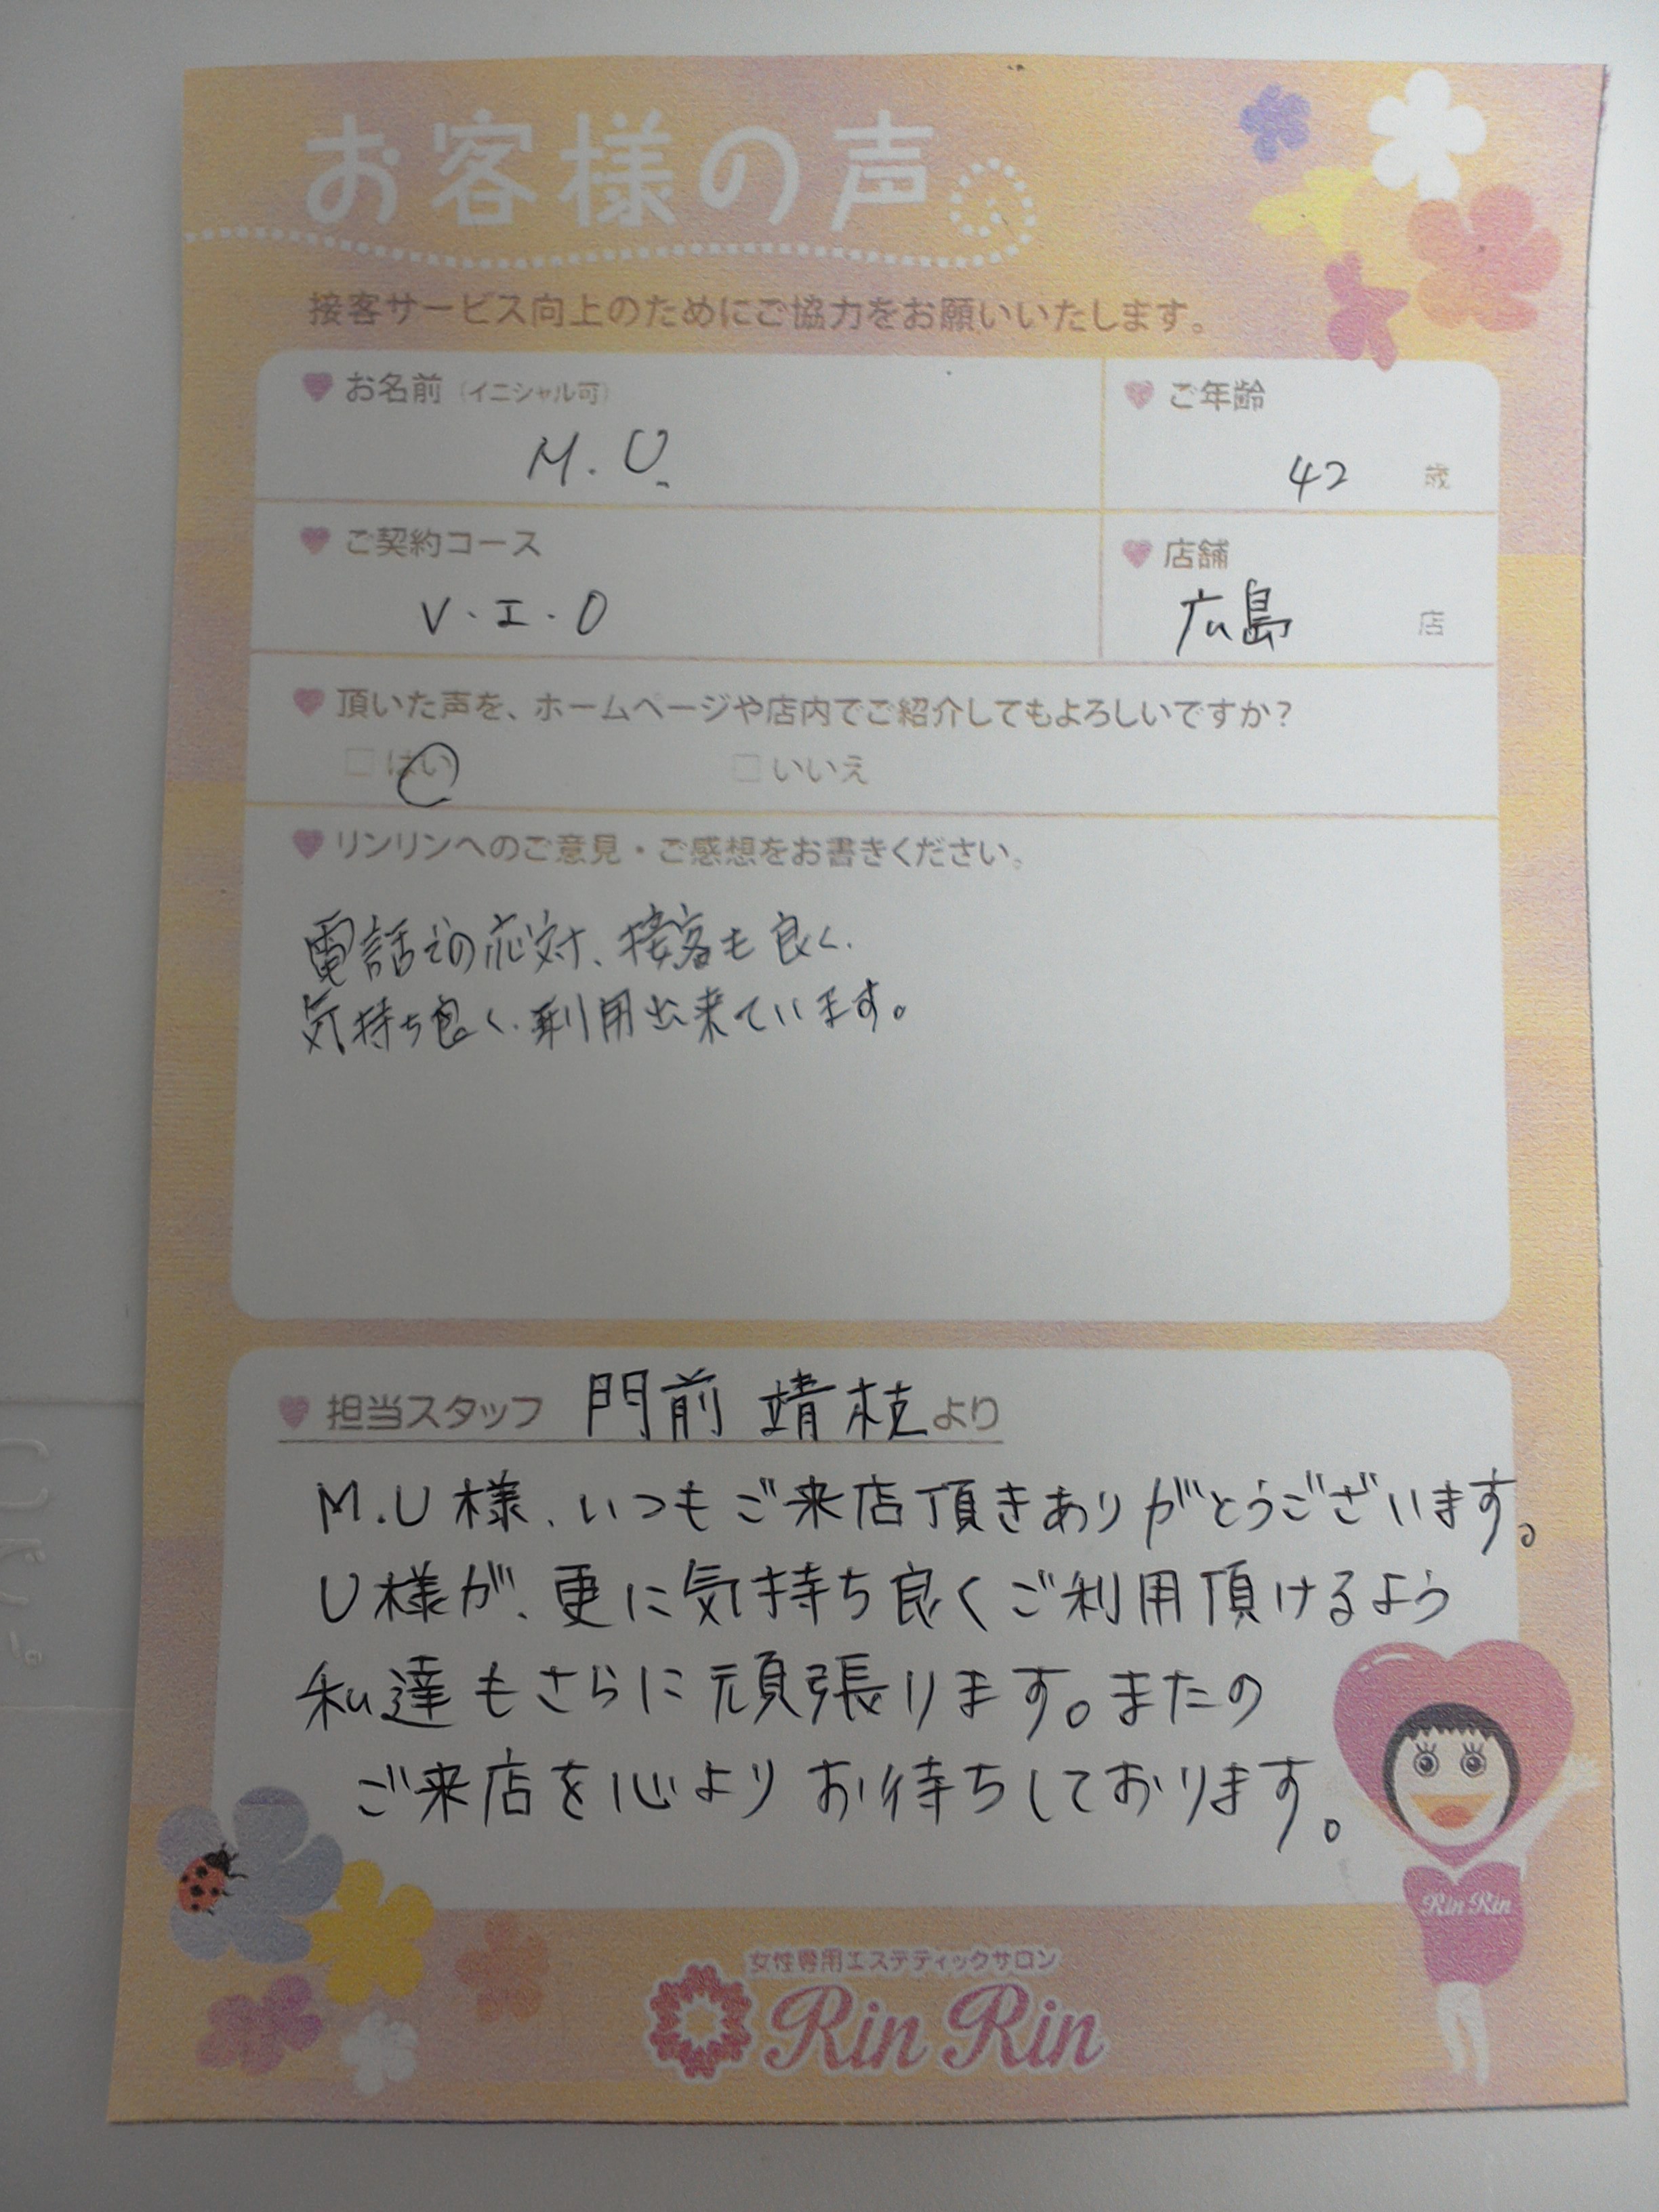 お客様の声
接客サービス向上のためにご協力をお願いいたします。
お名前（イニシャル可）
M.U.
ご年齢
42 歳
ご契約コース
V・I・O
店舗
広島 店
頂いた声を、ホームページや店内でご紹介してもよろしいですか？
□はい □いいえ
リンリンへのご意見・ご感想をお書きください。
電話での応対、接客も良く、
気持ち良く、利用出来ています。
担当スタッフ 門前 靖枝より
M.U様、いつもご来店頂きありがとうございます。
U様が、更に気持ち良くご利用頂けるよう
私達もさらに頑張ります。またの
ご来店を心よりお待ちしております。
Rin Rin
女性専用エステティックサロン
Rin Rin